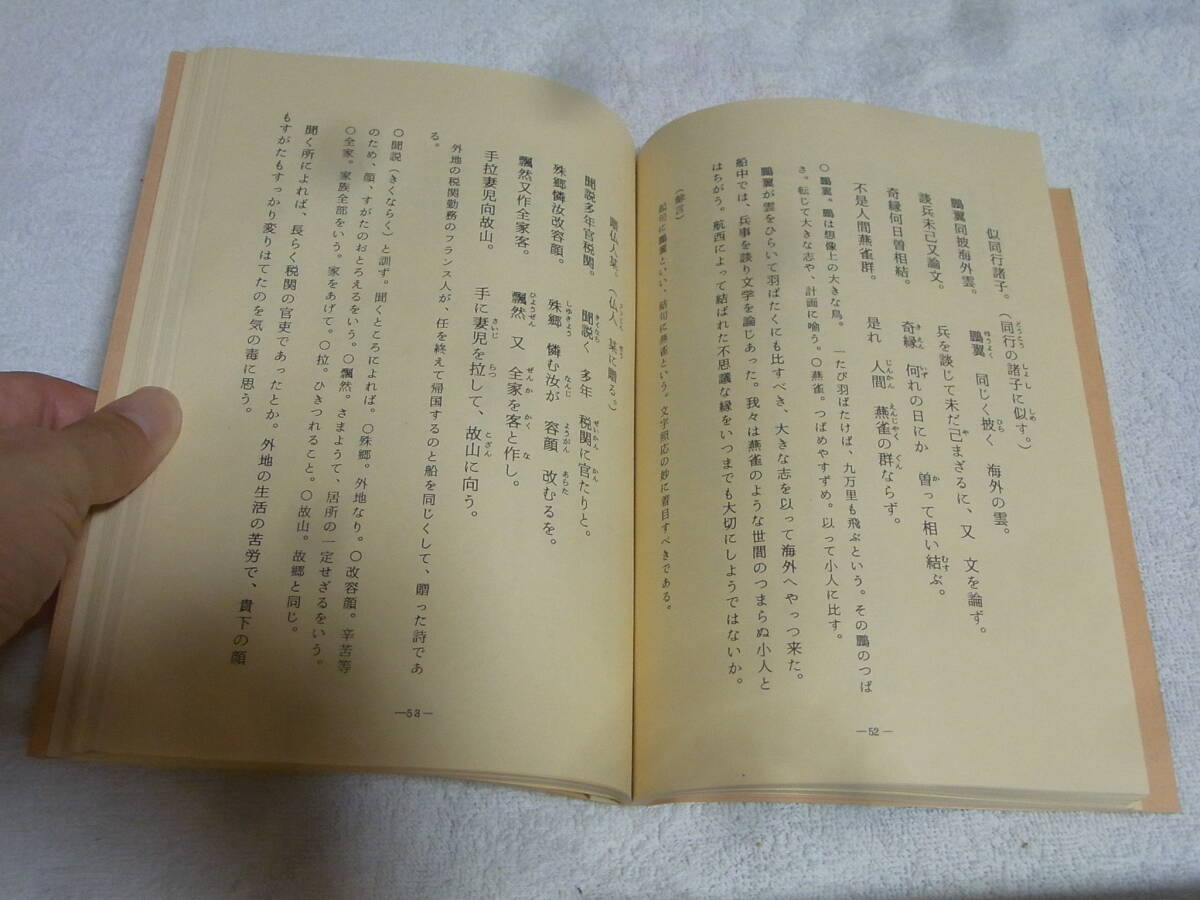 似同行諸子。(同行の諸子に似す。)
鵬翼同披海外雲。 鵬翼 同じく披く 海外の雲。
談兵未已又論文。 兵を談じて未だ已まざるに、又 文を論ず。
奇縁何日曽相結。 奇縁 何れの日にか 曽って相い結ぶ。
不是人間燕雀群。 是れ 人間 燕雀の群ならず。
〇鵬翼。鵬は想像上の大きな鳥。 一たび羽ばたけば、九万里も飛ぶという。その鵬のつば
さ。転じて大きな志や、計画に喩う。〇燕雀。つばめやすずめ。以って小人に比す。
鵬翼が雲をひらいて羽ばたくにも比すべき、大きな志を以って海外へやっつ来た。
船中では、兵事を談り文学を論じあった。我々は燕雀のような世間のつまらぬ小人と
はちがう。航西によって結ばれた不思議な縁をいつまでも大切にしようではないか。
起句に鵬翼といい、結句に燕雀という。文字照応の妙に着目すべきである。
—52—
贈仏人某。(仏人 某に贈る。)
聞説多年官税関。 聞説く 多年 税関に官たりと。
殊郷憐汝改容顔。 殊郷 憐む汝が 容顔 改むるを。
飄然又作全家客。 飄然 又 全家を客と作し。
手拉妻児向故山。 手に妻児を拉して、故山に向う。
外地の税関勤務のフランス人が、任を終えて帰国するのと船を同じくして、贈った詩であ
る。
〇聞説(きくならく)と訓ず。聞くところによれば。〇殊郷。外地なり。〇改容顔。辛苦等
のため、顔、すがたのおとろえるをいう。〇飄然。さまようて、居所の一定せざるをいう。
〇全家。家族全部をいう。家をあげて。〇拉。ひきつれること。〇故山。故郷と同じ。
聞く所によれば、長らく税関の官吏であったとか。外地の生活の苦労で、貴下の顔
もすがたもすっかり変りはてたのを気の毒に思う。
—53—